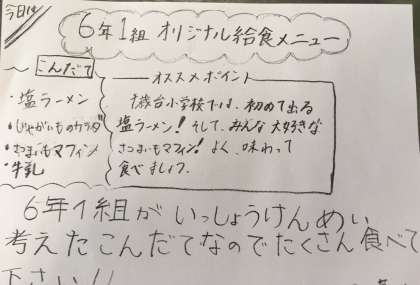 今日は
6年1組 オリジナル給食メニュー
こんだて
・塩ラーメン
・じゃがいものサラダ
・さつまいもマフィン
・牛乳
オススメポイント
台小学校では、初めて出る
塩ラーメン! そして、みんな大好きな
さつまいもマフィン! よく味わって
食べましょう。
6年1組がいっしょうけんめい
考えたこんだてなのでたくさん食べて
下さい!!